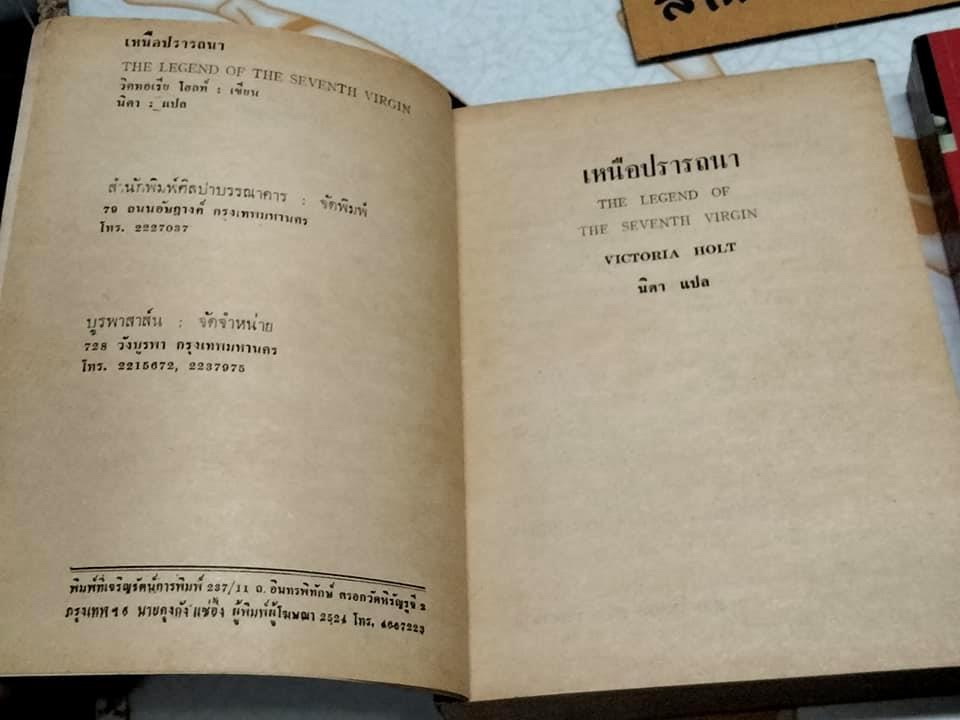 เหนือปรารถนา
THE LEGEND OF THE SEVENTH VIRGIN
วิคทอเรีย โฮลท์ : เขียน
นิดา : แปล
สำนักพิมพ์ศิลปาบรรณาคาร : จัดพิมพ์
79 ถนนอัษฎางค์ กรุงเทพมหานคร
โทร. 2227037
บูรพาสาส์น : จัดจำหน่าย
728 วังบูรพา กรุงเทพมหานคร
โทร. 2215672, 2237975
พิมพ์ที่เจริญรัตน์การพิมพ์ 237/11 ถ. อินทรพิทักษ์ ตรอกวัดหิรัญรูจี 2
กรุงเทพ ฯ 6 นายคุงกัง แซ่อึ้ง ผู้พิมพ์ผู้โฆษณา 2524 โทร. 4667223
เหนือปรารถนา
THE LEGEND OF
THE SEVENTH VIRGIN
VICTORIA HOLT
นิดา แปล